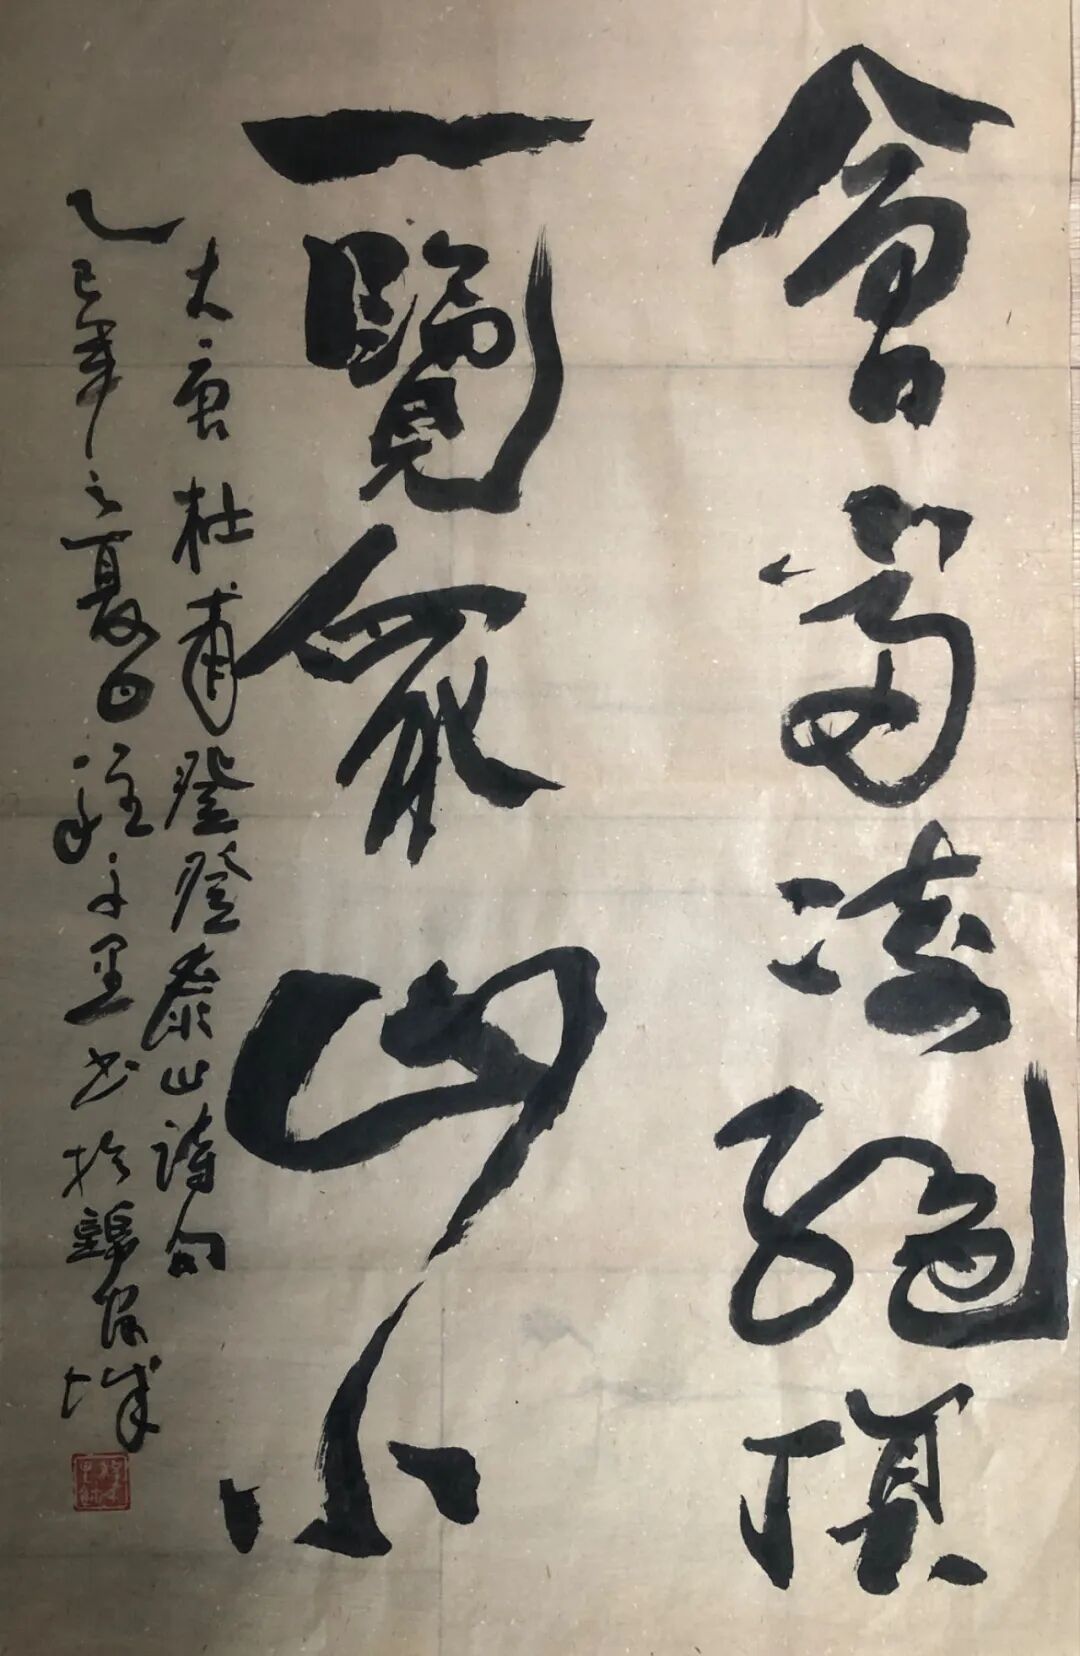 會當凌絕頂
一覽眾山小
大唐杜甫登登泰山詩句
乙巳年之夏日 書於錦官城